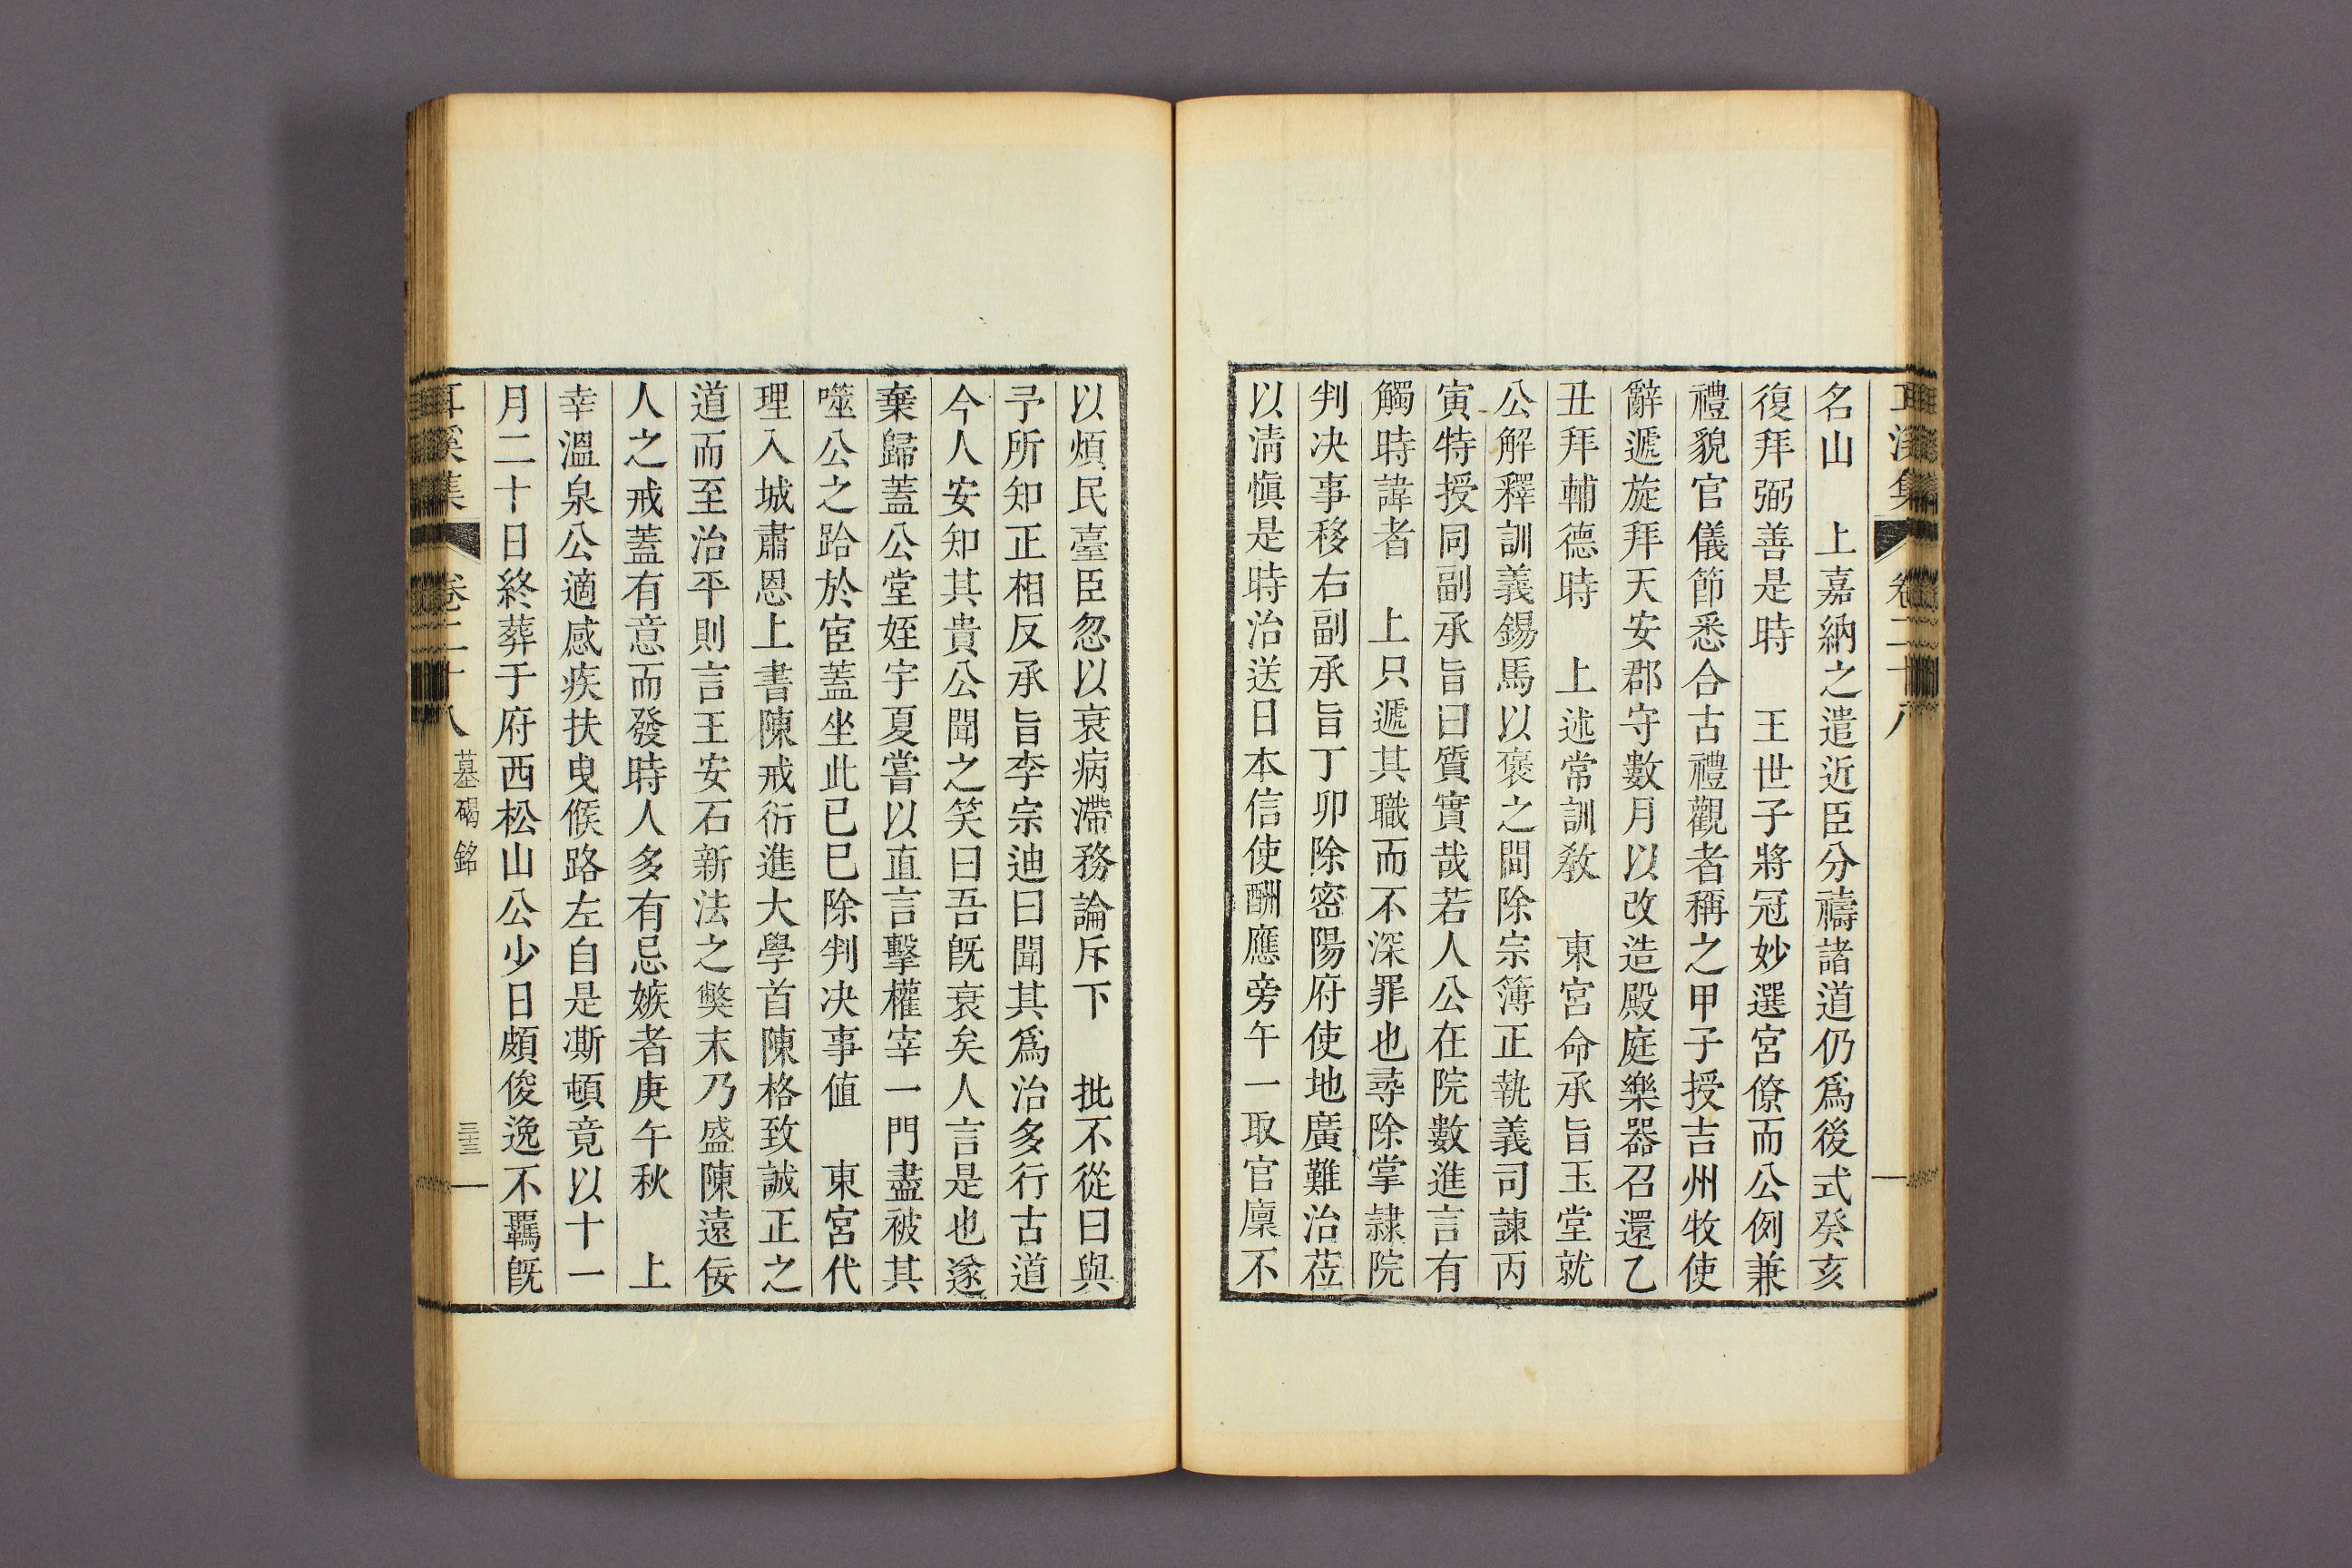 耳溪集 卷二十八
名山　上嘉納之遣近臣分禱諸道仍爲後式癸亥
復拜弼善是時　王世子將冠妙選宮僚而公例兼
禮貌官儀節悉合古禮觀者稱之甲子授吉州牧使
辭遞旋拜天安郡守數月以改造殿庭樂器召還乙
丑拜輔德時　上述常訓敎　東宮命承旨玉堂就
公解釋訓義錫馬以褒之間除宗簿正執義司諫丙
寅特授同副承旨曰質實哉若人公在院數進言有
觸時諱者　上只遞其職而不深罪也尋除掌隷院
判决事移右副承旨丁卯除密陽府使地廣難治莅
以淸愼是時治送日本信使酬應旁午一取官廩不
以煩民臺臣忽以衰病滯務論斥下　批不從曰與
予所知正相反承旨李宗迪曰聞其爲治多行古道
今人安知其貴公聞之笑曰吾旣衰矣人言是也遂
棄歸蓋公堂姪宇夏嘗以直言擊權宰一門盡被其
噬公之跲於宦蓋坐此已巳除判决事值　東宮代
理入城肅恩上書陳戒衍進大學首陳格致誠正之
道而至治平則言王安石新法之獘末乃盛陳遠佞
人之戒蓋有意而發時人多有忌嫉者庚午秋　上
幸溫泉公適感疾扶曳候路左自是澌頓竟以十一
月二十日終葬于府西松山公少日頗俊逸不羈旣
耳溪集 卷二十八 墓碣銘 三十三